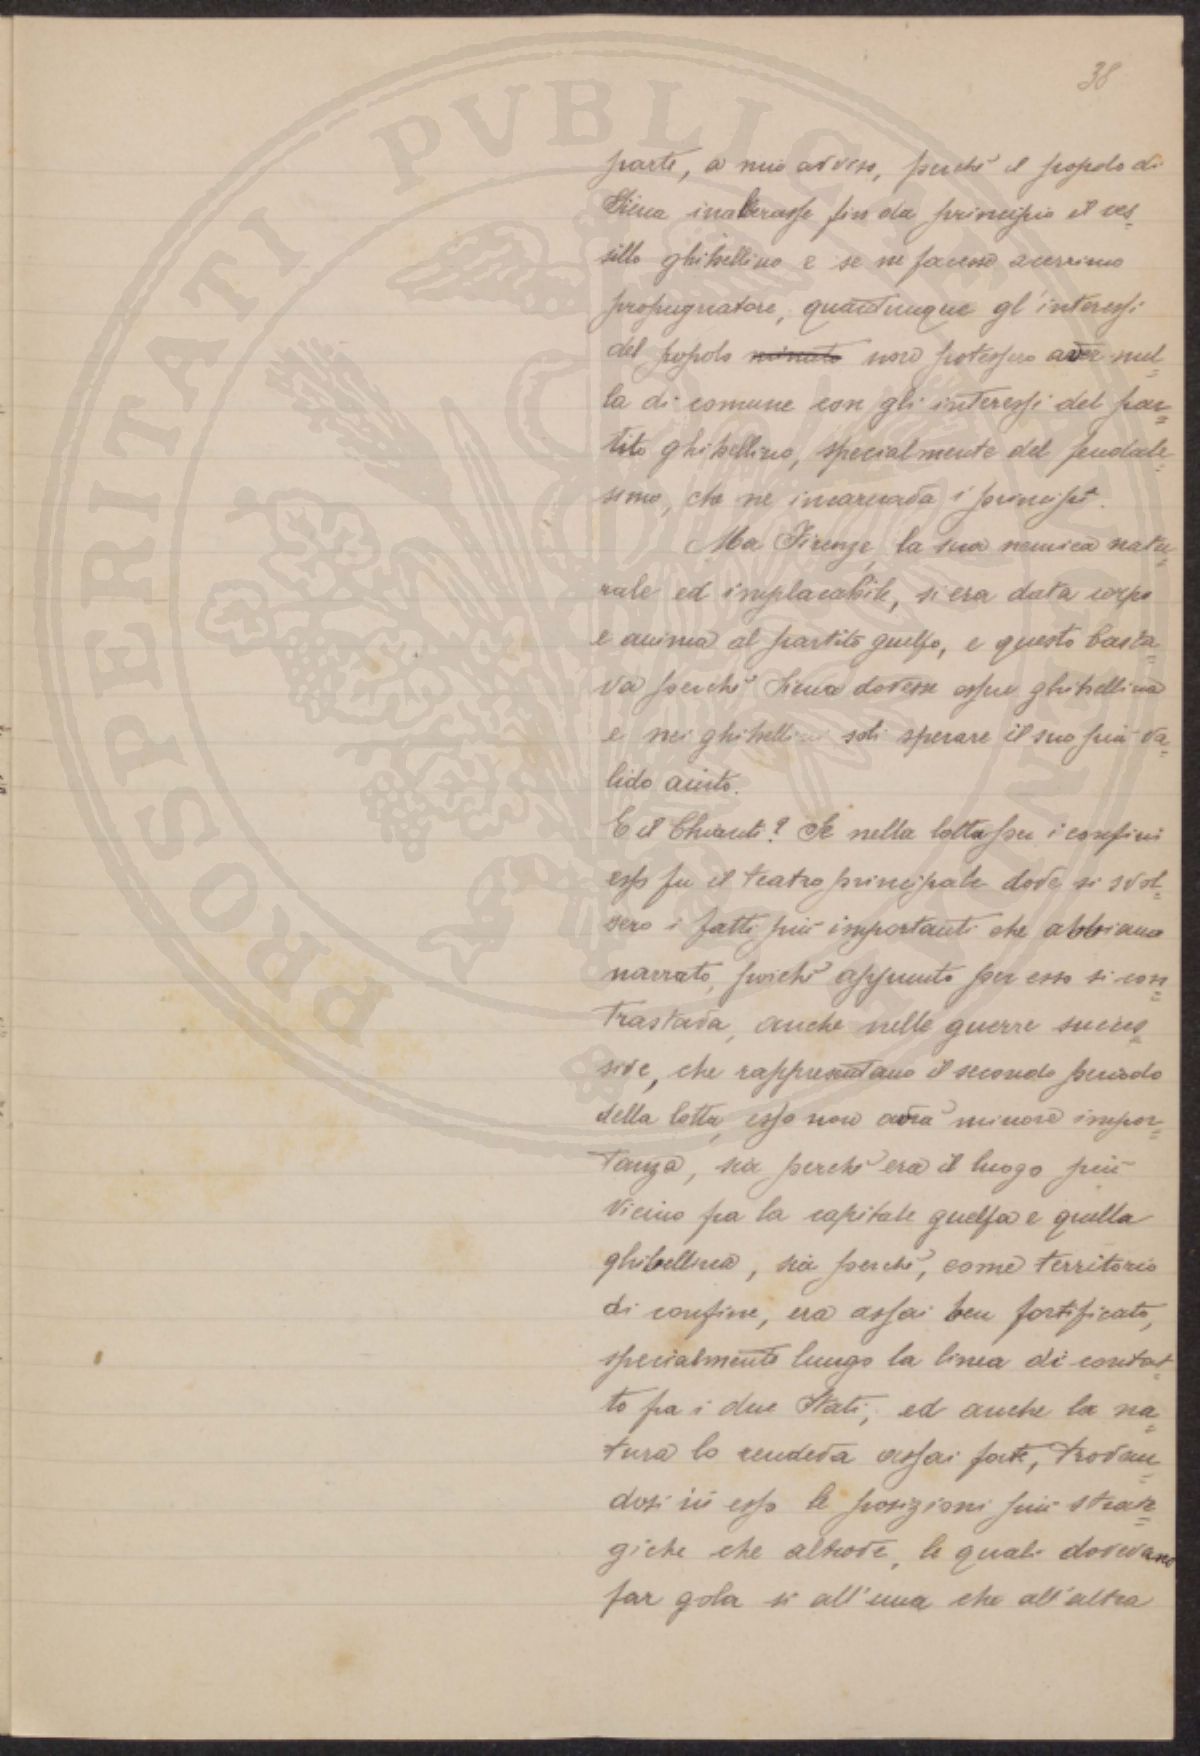 38
parte, a mio avviso, perchè il popolo di
Siena inalberasse fin da principio il ves=
sillo ghibellino e se ne facesse acerrimo
propugnatore, quantunque gl'interessi
del popolo minuto non potessero aver nul=
la di comune con gli interessi del par=
tito ghibellino, specialmente del feudale=
simo, che ne incarnava i principî.
Ma Firenze, la sua nemica natu=
rale ed implacabile, si era data corpo
e anima al partito guelfo, e questo basta=
va perchè Siena dovesse esser ghibellina
e nei ghibellini soli sperare il suo più va=
lido aiuto.
E il Chianti? Se nella lotta per i confini
esso fu il teatro principale dove si svol=
sero i fatti più importanti che abbiamo
narrato, poichè appunto per esso si con=
trastava, anche nelle guerre succes=
sive, che rappresentano il secondo periodo
della lotta, esso non avrà minore impor=
tanza, sia perchè era il luogo più
vicino fra la capitale guelfa e quella
ghibellina, sia perchè, come territorio
di confine, era assai ben fortificato,
specialmente lungo la linea di contat=
to fra i due Stati; ed anche la na=
tura lo rendeva assai forte, trovan=
dosi in esso le posizioni più strate=
giche che altrove, le quali dovevano
far gola sì all'una che all'altra
PROSPERITATI PVBLICAE